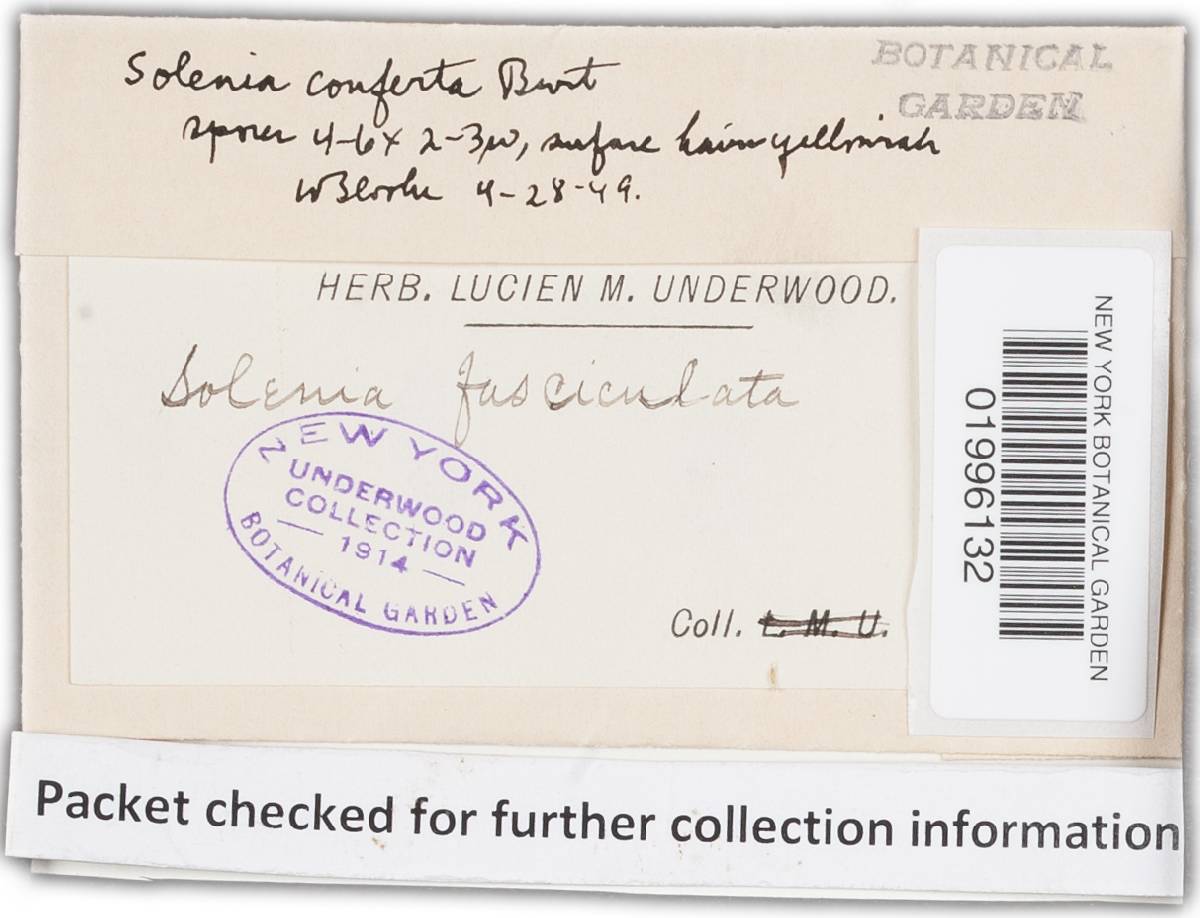 Solenia conferta Burt
spores 4-6 x 2-3µ, surface hairs yellowish
WBCooke 4-28-49.
BOTANICAL
GARDEN
HERB. LUCIEN M. UNDERWOOD.
Solenia fasciculata
NEW YORK
UNDERWOOD
COLLECTION
1914
BOTANICAL GARDEN
Coll. L. M. U.
NEW YORK BOTANICAL GARDEN
01996132
Packet checked for further collection information